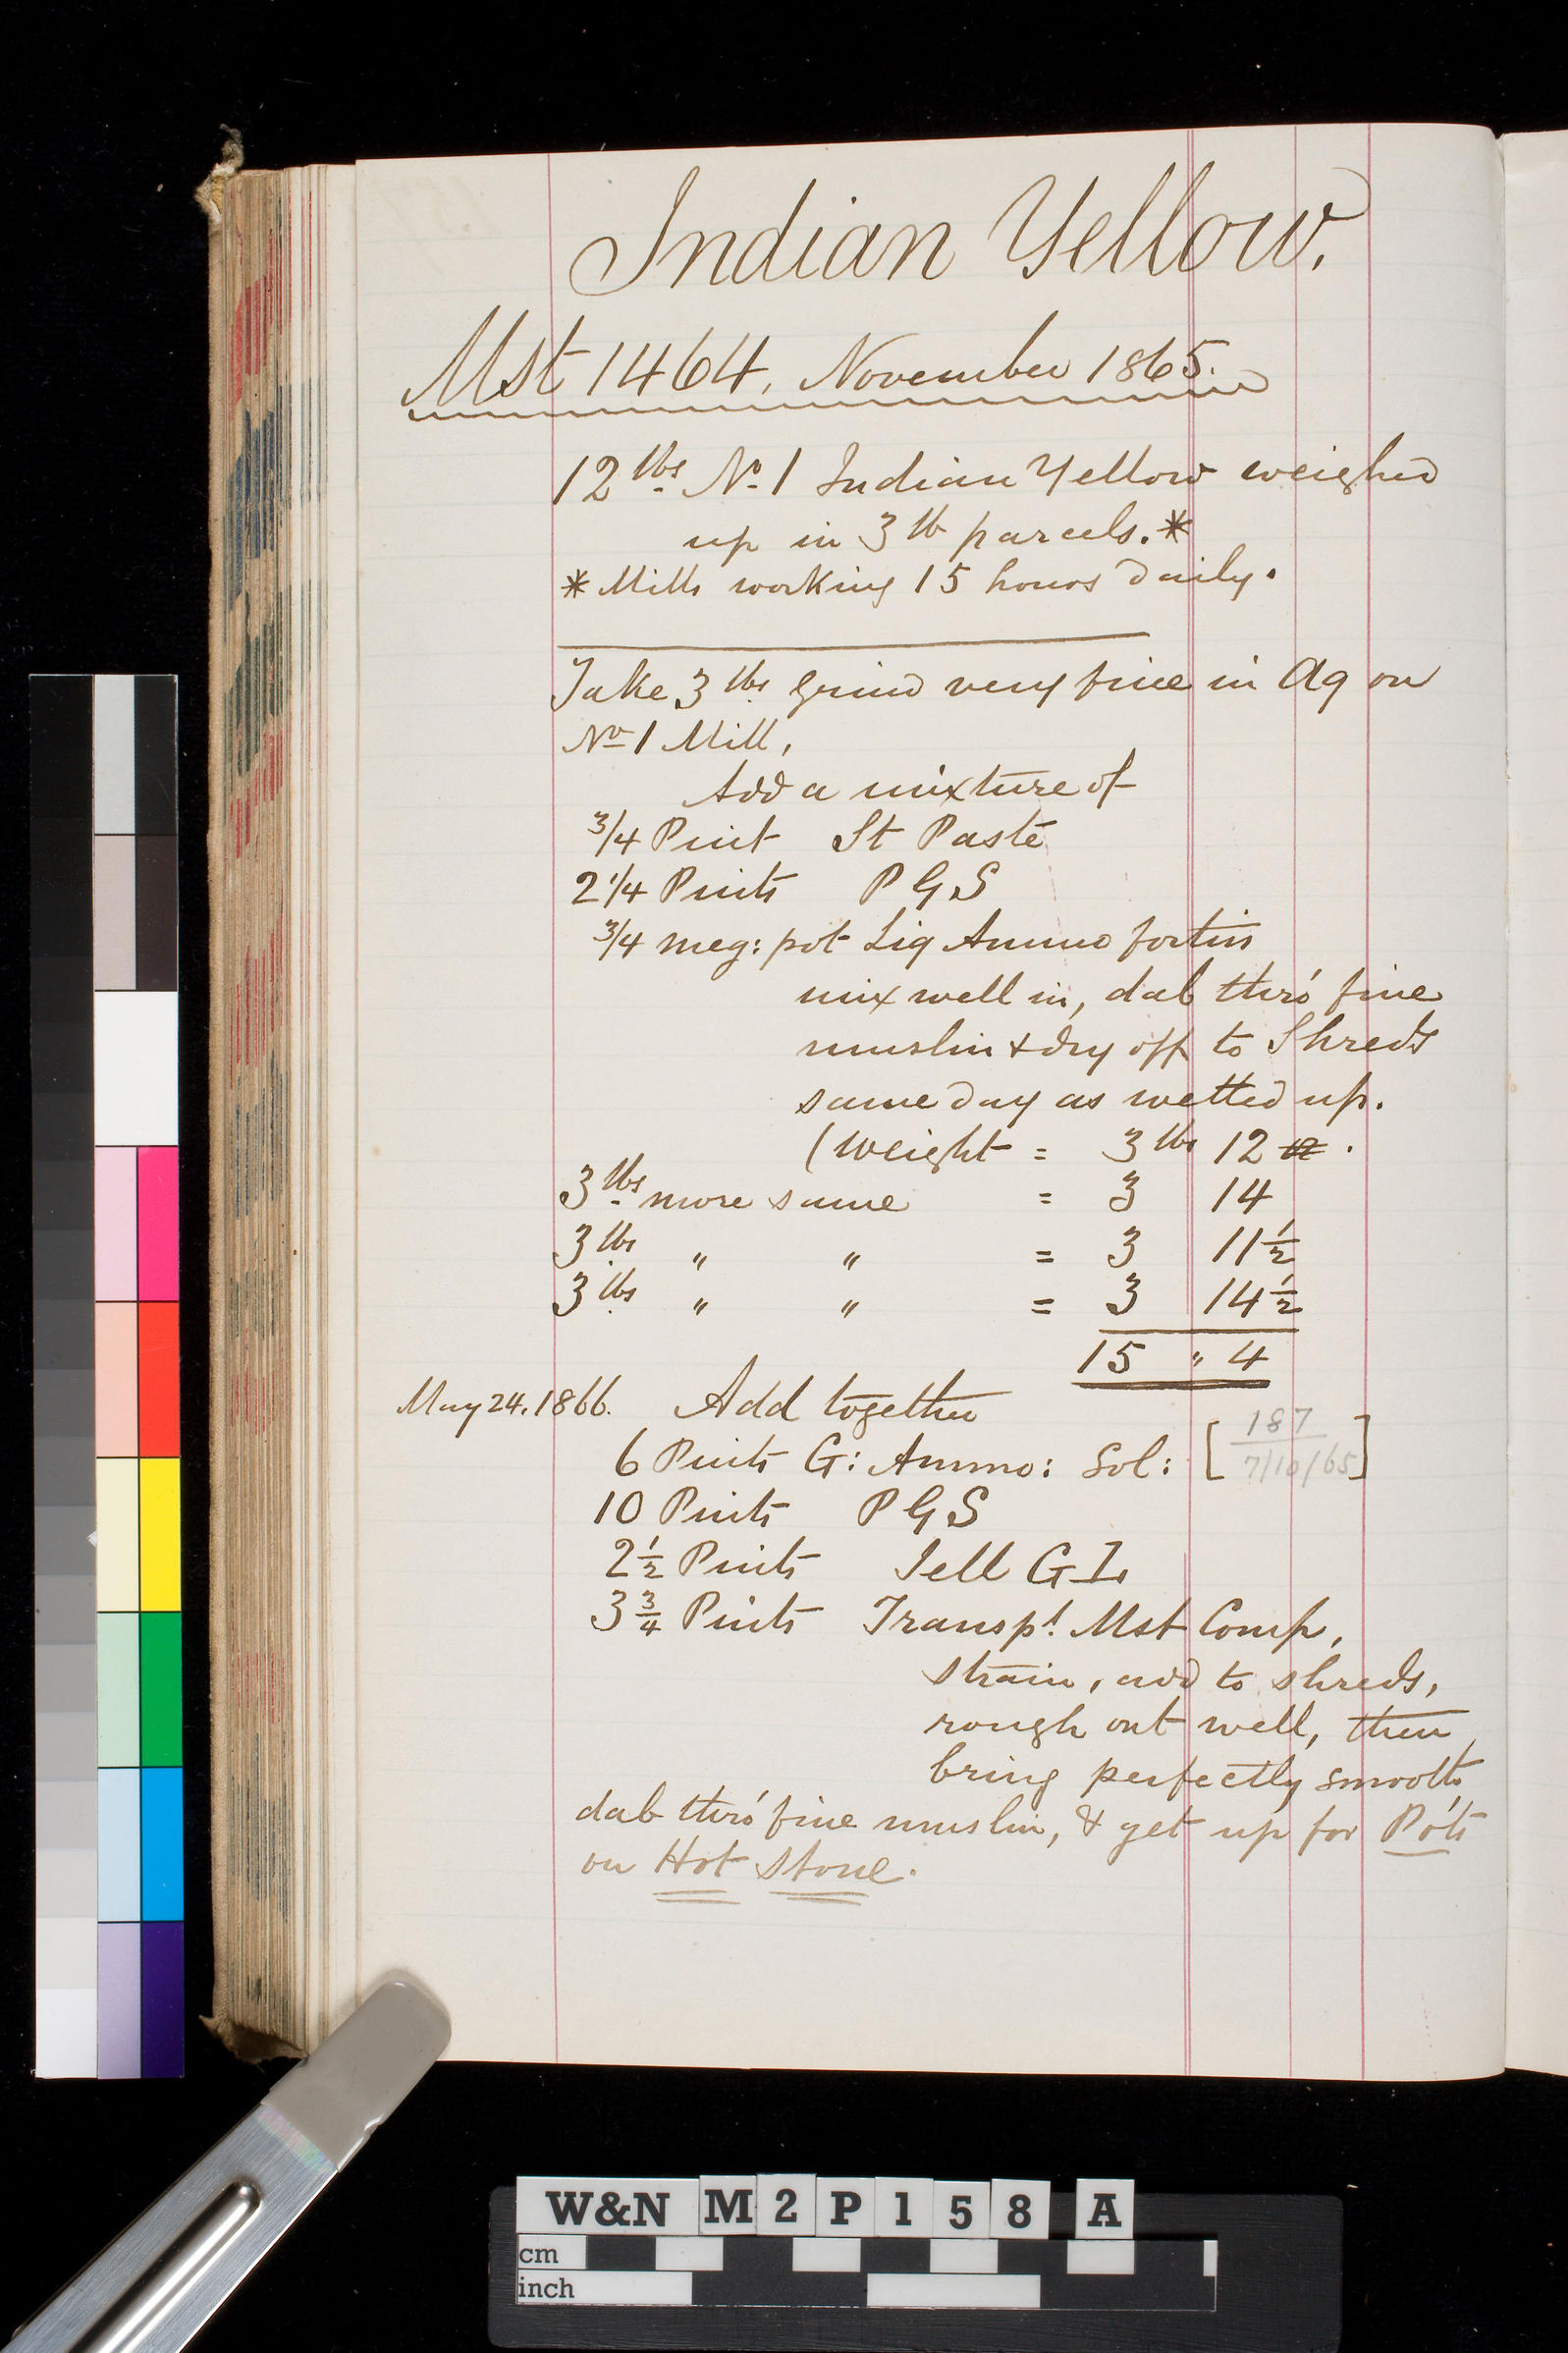 Indian Yellow.
Mst 1464, November 1865.
12 lbs No 1 Indian Yellow weighed
up in 3 lb parcels.*
* Mills working 15 hours daily.
Take 3 lbs grind very fine in Aq on
No 1 Mill,
Add a mixture of
3/4 Pint St Paste
2 1/4 Pints P G S
3/4 meg: pot Liq Ammo fortis
mix well in, dab thro' fine
muslin & dry off to Shreds
same day as wetted up.
(Weight = 3 lbs 12 .
3 lbs more same = 3 14
3 lbs " " = 3 11 1/2
3 lbs " " = 3 14 1/2
15 " 4
May 24. 1866. Add together
6 Pints G: Ammo: Sol: [187
7/10/65]
10 Pints P G S
2 1/2 Pints Jell G I.
3 3/4 Pints Transpt. Mst Comp,
strain, add to shreds,
rough out well, then
bring perfectly smooth,
dab thro' fine muslin, & get up for Pots
on Hot Stone.
W&N M2P158 A
cm
inch